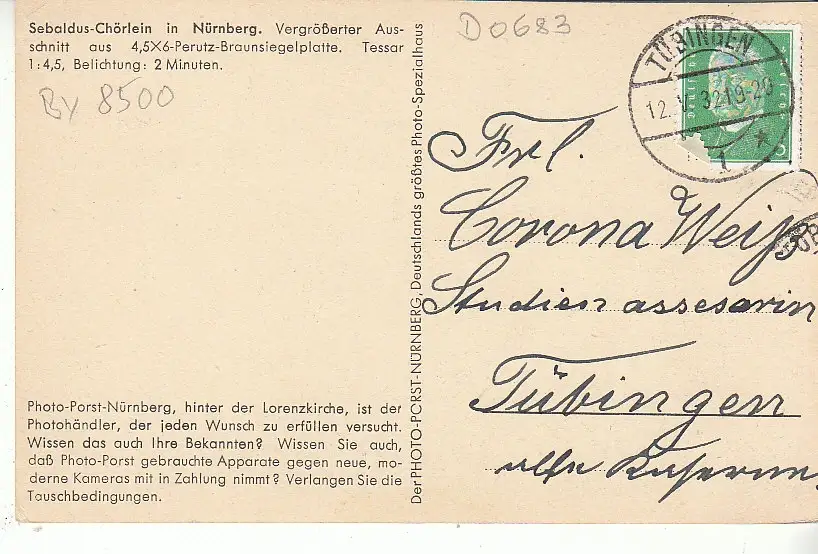 Sebaldus-Chörlein in Nürnberg. Vergrößerter Aus-
schnitt aus 4,5X6-Perutz-Braunsiegelplatte. Tessar
1:4,5, Belichtung: 2 Minuten.
BY 8500
D0683
TÜBINGEN
12.V.32 19-20
1
Deutsches
Frl.
Corona Weiß
Studienassessorin
Tübingen
alte Kaserne
Der PHOTO-PORST-NÜRNBERG, Deutschlands größtes Photo-Spezialhaus
Photo-Porst-Nürnberg, hinter der Lorenzkirche, ist der
Photohändler, der jeden Wunsch zu erfüllen versucht.
Wissen das auch Ihre Bekannten? Wissen Sie auch,
daß Photo-Porst gebrauchte Apparate gegen neue, mo-
derne Kameras mit in Zahlung nimmt? Verlangen Sie die
Tauschbedingungen.